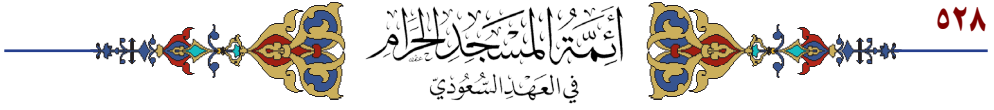 ٥٢٨
أَئِمَّةُ المَسْجِدِ الحَرَامِ
فِي العَهْدِ السُّعُودِيّ